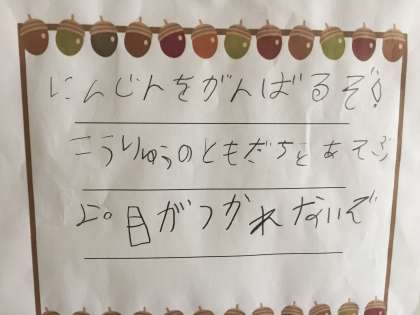 にんじんをがんばるぞ!
こうりゅうのともだちとあそぶ
目がつかれないぞ